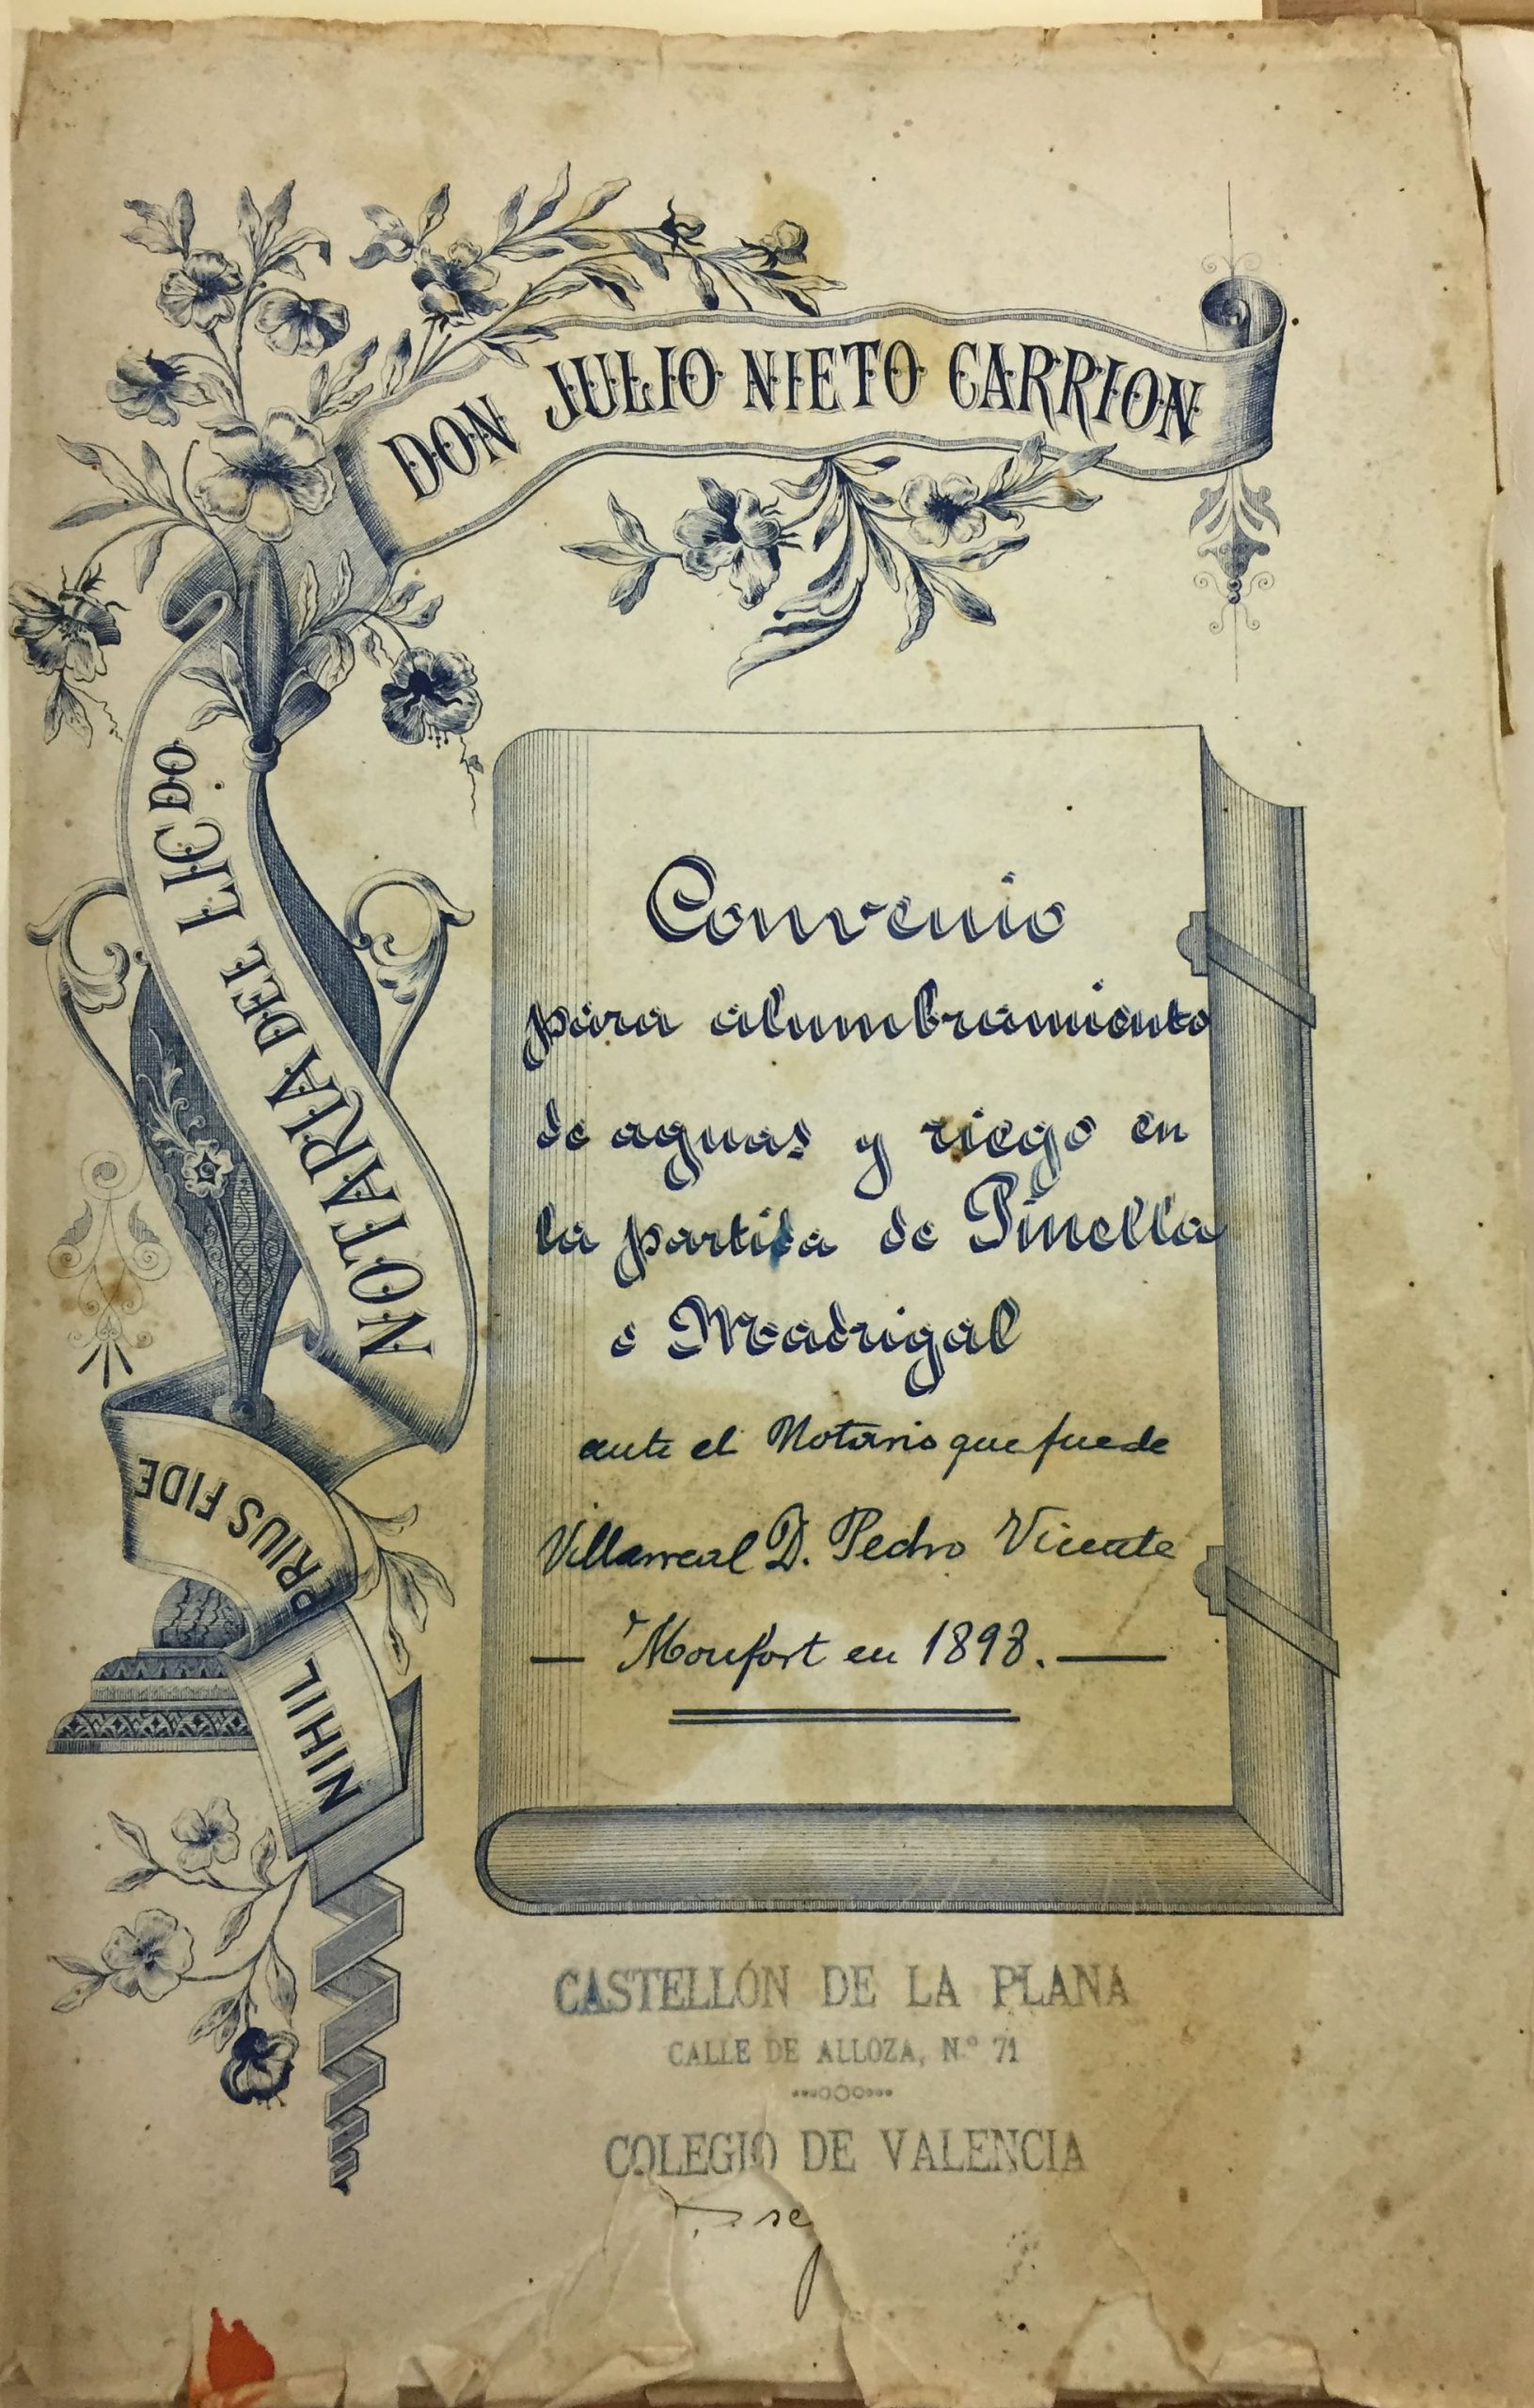 NOTARIA DEL LICDO
DON JULIO NIETO CARRION
NIHIL PRIUS FIDE
Convenio
para alumbramiento
de aguas y riego en
la partida de Pinella
o Madrigal
ante el Notario que fue de
Villarreal D. Pedro Vicente
— Monfort en 1898. —
CASTELLÓN DE LA PLANA
CALLE DE ALLOZA, N.º 71
COLEGIO DE VALENCIA